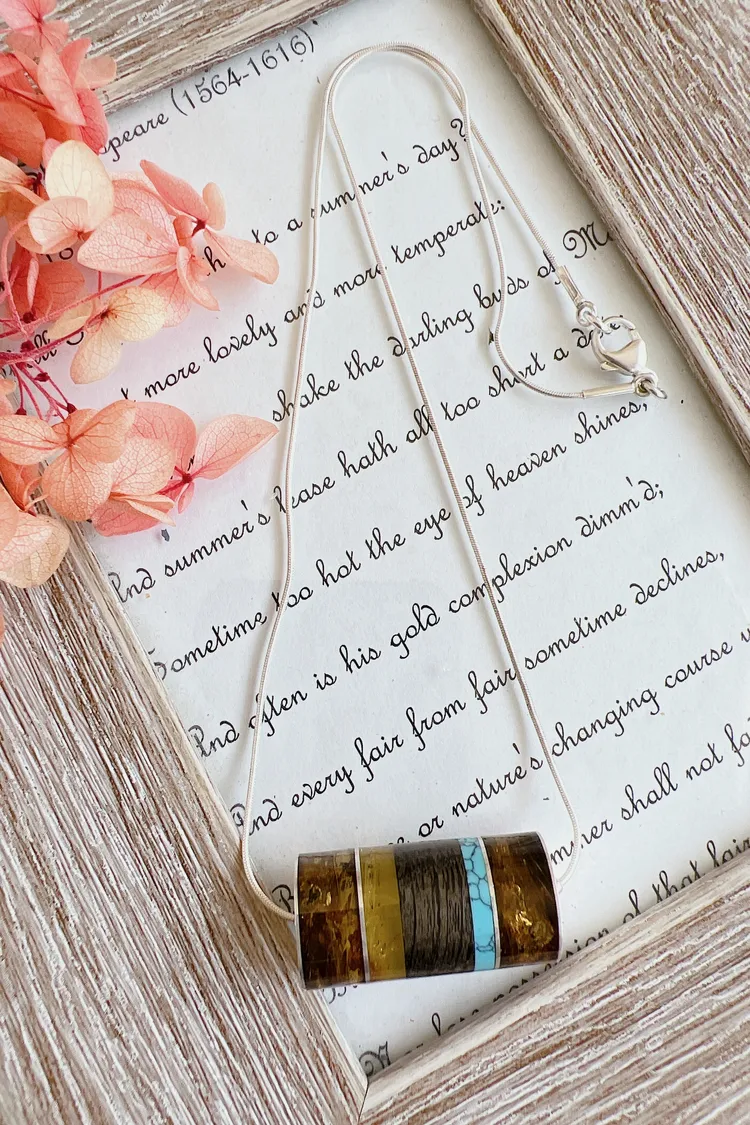 speare (1564-1616)
to a summer's day?
more lovely and more temperate:
shake the darling buds of M
And summer's lease hath all too short a da
Sometime too hot the eye of heaven shines,
And often is his gold complexion dimm'd;
And every fair from fair sometime declines,
or nature's changing course
mmer shall not fa
possession of that fair